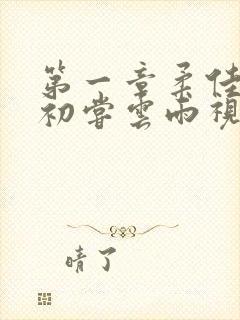 第一章柔佳
初尝雲雨視
晴了